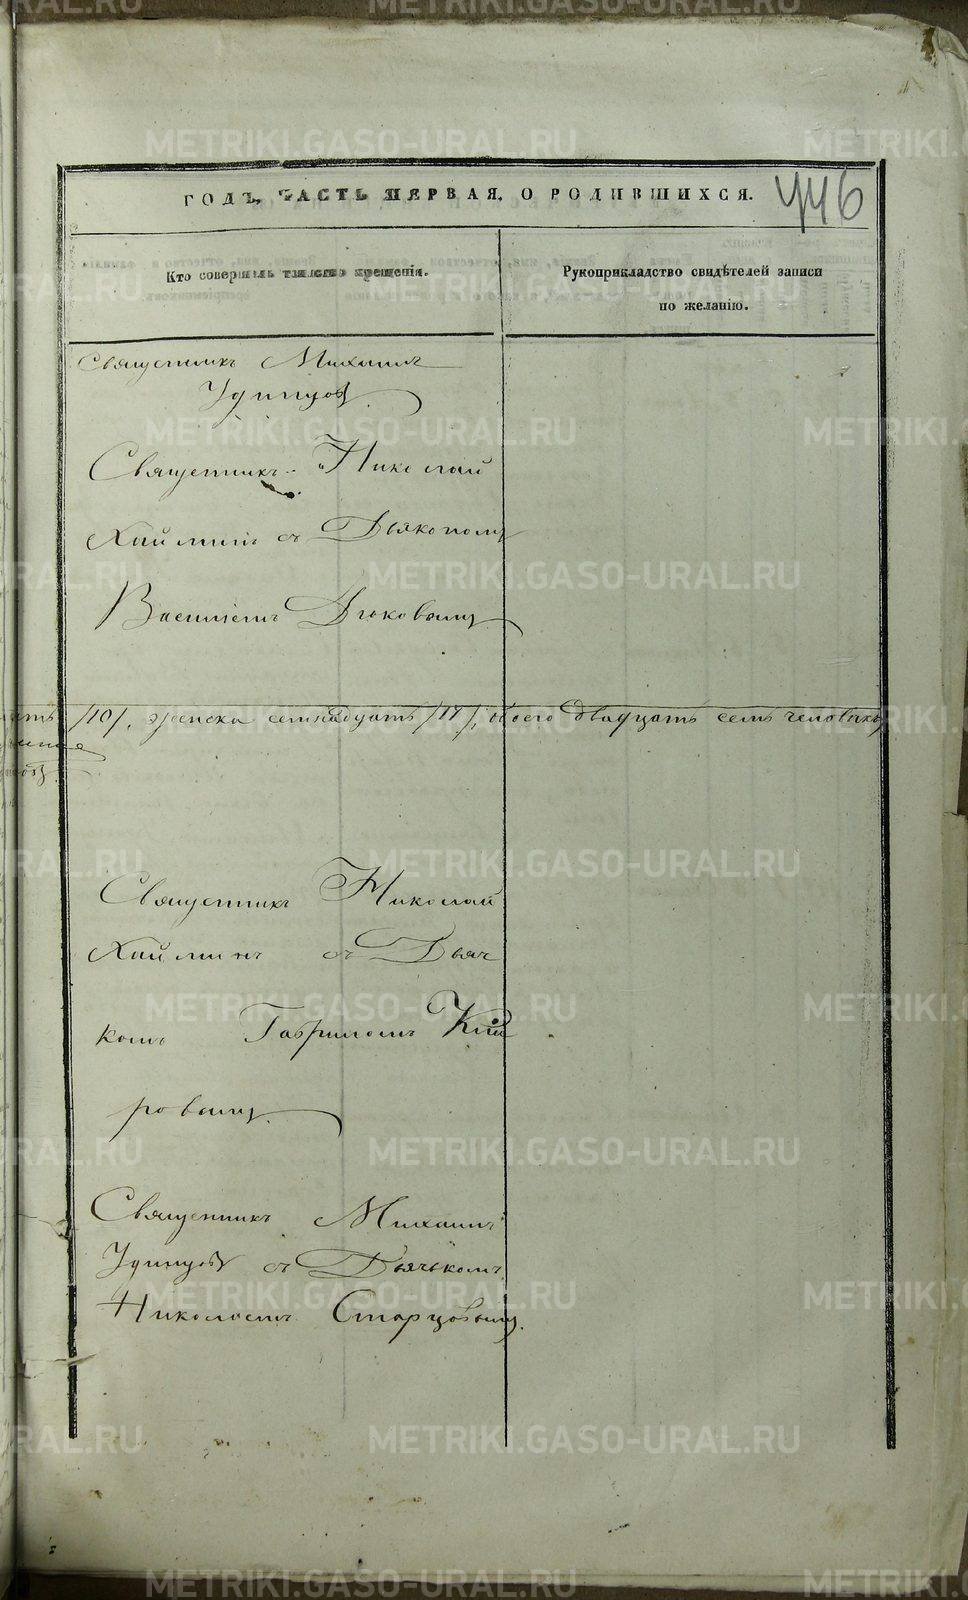 ГОДЪ, ЧАСТЬ ПЕРВАЯ, О РОДИВШИХСЯ. 446
Кто совершалъ таинство крещенія.
Рукоприкладство свидѣтелей записи
по желанію.
Священникъ Михаилъ
Удинцовъ
Священникъ Николай
Хайминъ съ Дьякономъ
Василіемъ Дюковымъ
/10/, женска семнадцать /17/, обоего двадцать семь человѣкъ
Священникъ Николай
Хайминъ съ Дьяч
комъ Гавриломъ Ки
ровымъ
Священникъ Михаилъ
Удинцовъ съ Дьячькомъ
Николаемъ Старцовымъ.
METRIKI.GASO-URAL.RU